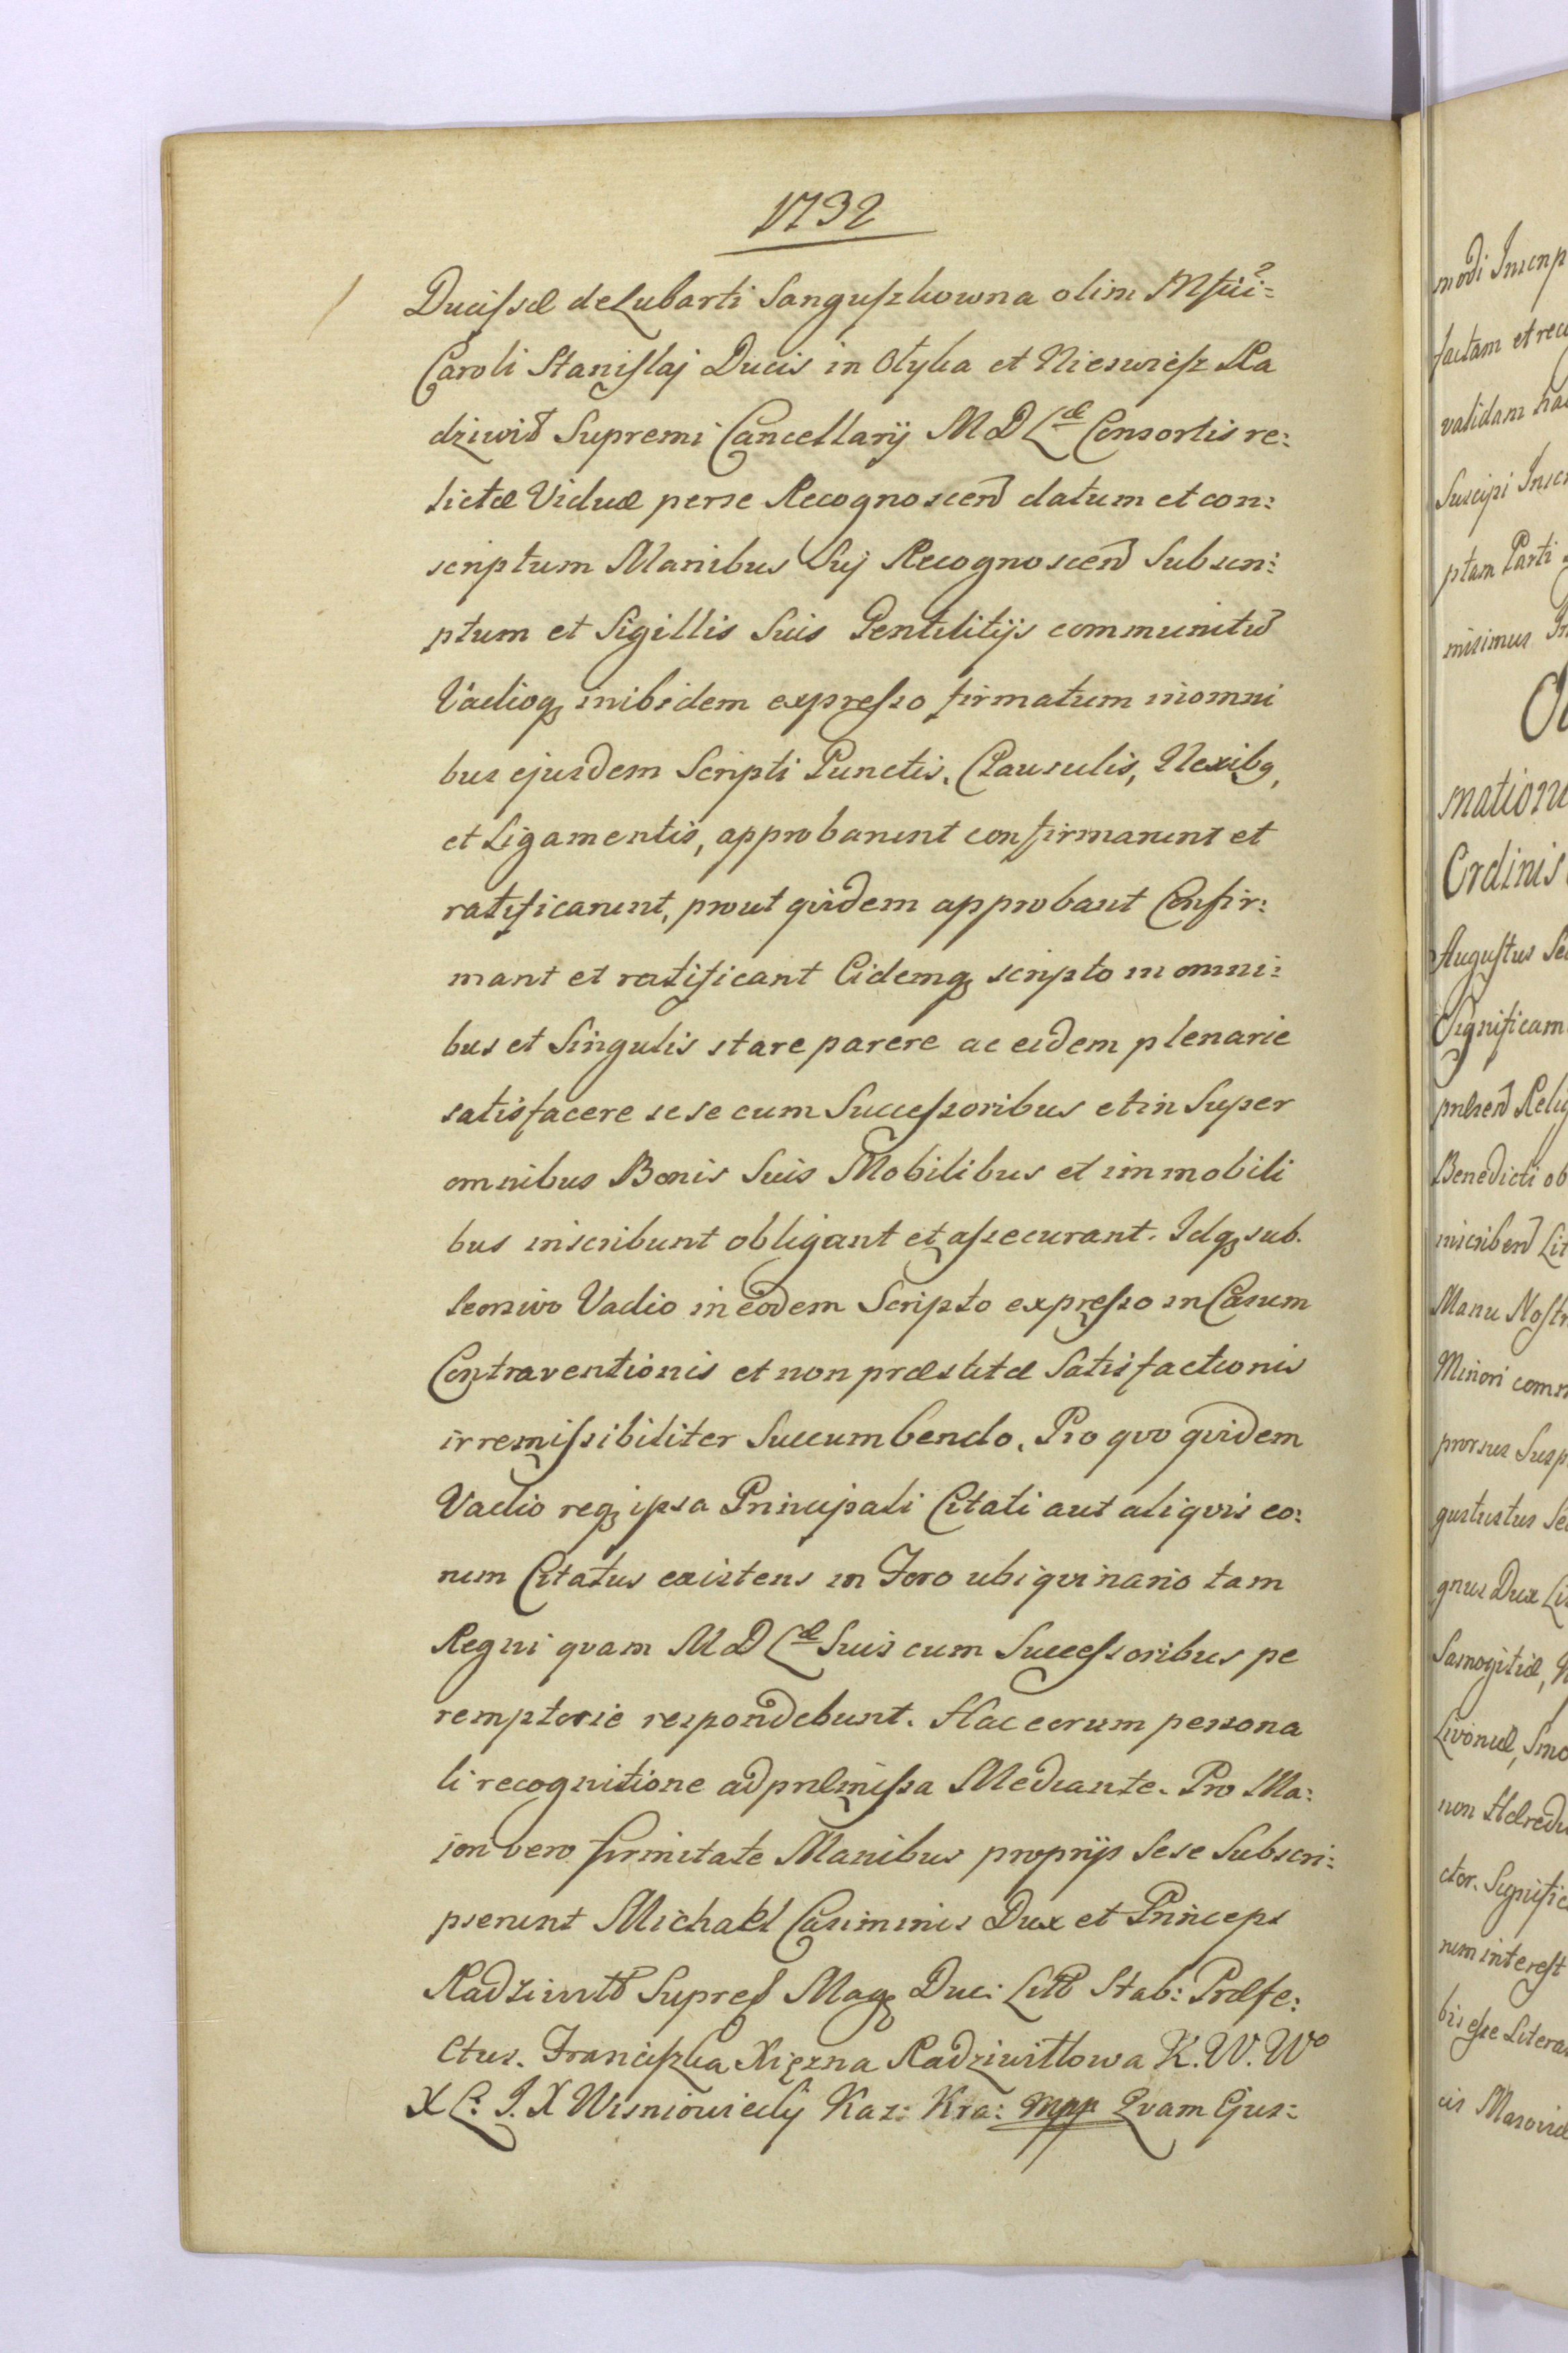 1732
Ducissæ de Lubarti Sanguszkowna olim
Caroli Stanislaj Ducis in Olyka et Nieswiesz Ra
dziwił Supremi Cancellarij M D L æ Consortis re:
lictæ Viduæ per se Recognoscen datum et con:
scriptum Manibus Suj Recognoscen Subscri:
ptum et Sigillis Suis Gentilitijs communitu
Vadioq inibidem expresso firmatum in omni
bus ejusdem Scripti Punctis, Clausulis, Nexibq,
et Ligamentis, approbarunt confirmarunt et
ratificarunt, prout qvidem approbant Confir:
mant et ratificant Eidemq scripto in omni:
bus et Singulis stare parere ac eidem plenarie
satisfacere sese cum Successoribus et in Super
omnibus Bonis Suis Mobilibus et immobili
bus inscribunt obligant et assecurant. Idq sub.
Vadio in eodem Scripto expresso in Casum
Contraventionis et non præstitæ Satisfactionis
irremissibiliter Succumbendo. Pro qvo qvidem
Vadio req ipsa Principali Citati aut aliqvis eo:
rum Citatus existens in Foro ubiqvinario tam
Regni qvam M D L æ Suis cum Successoribus pe
remptorie respondebunt. Hac eorum persona
li recognitione ad præmissa Mediante. Pro Ma:
iori vero firmitate Manibus proprijs Sese Subscri:
pserunt Michael Casimiris Dux et Princeps
Radziwił Supreß Mag Duc: Litt Stab: Præfe:
ctus. Franciszka Xięzna Radziwiłłowa K. W. Wo
X C: J. X Wisniowiecky Kaz: Kra: mpp Qvam Gus:
modi Inscrip
factam et rec
validam
Suscipi Inscr
ptam Parti
misimus
mation
Ordinis
Augustus Se
Significam
Relig
Benedicti ob
inscriben Lit
Manu Nostr
Minori comm
prorsus Susp
gustustus Se
gnus Dux Li
Samogitiæ,
Livoniæ, Smo
non Hæredi
ctor. Signific
rum interest
bis esse Litera
cis Masoviæ